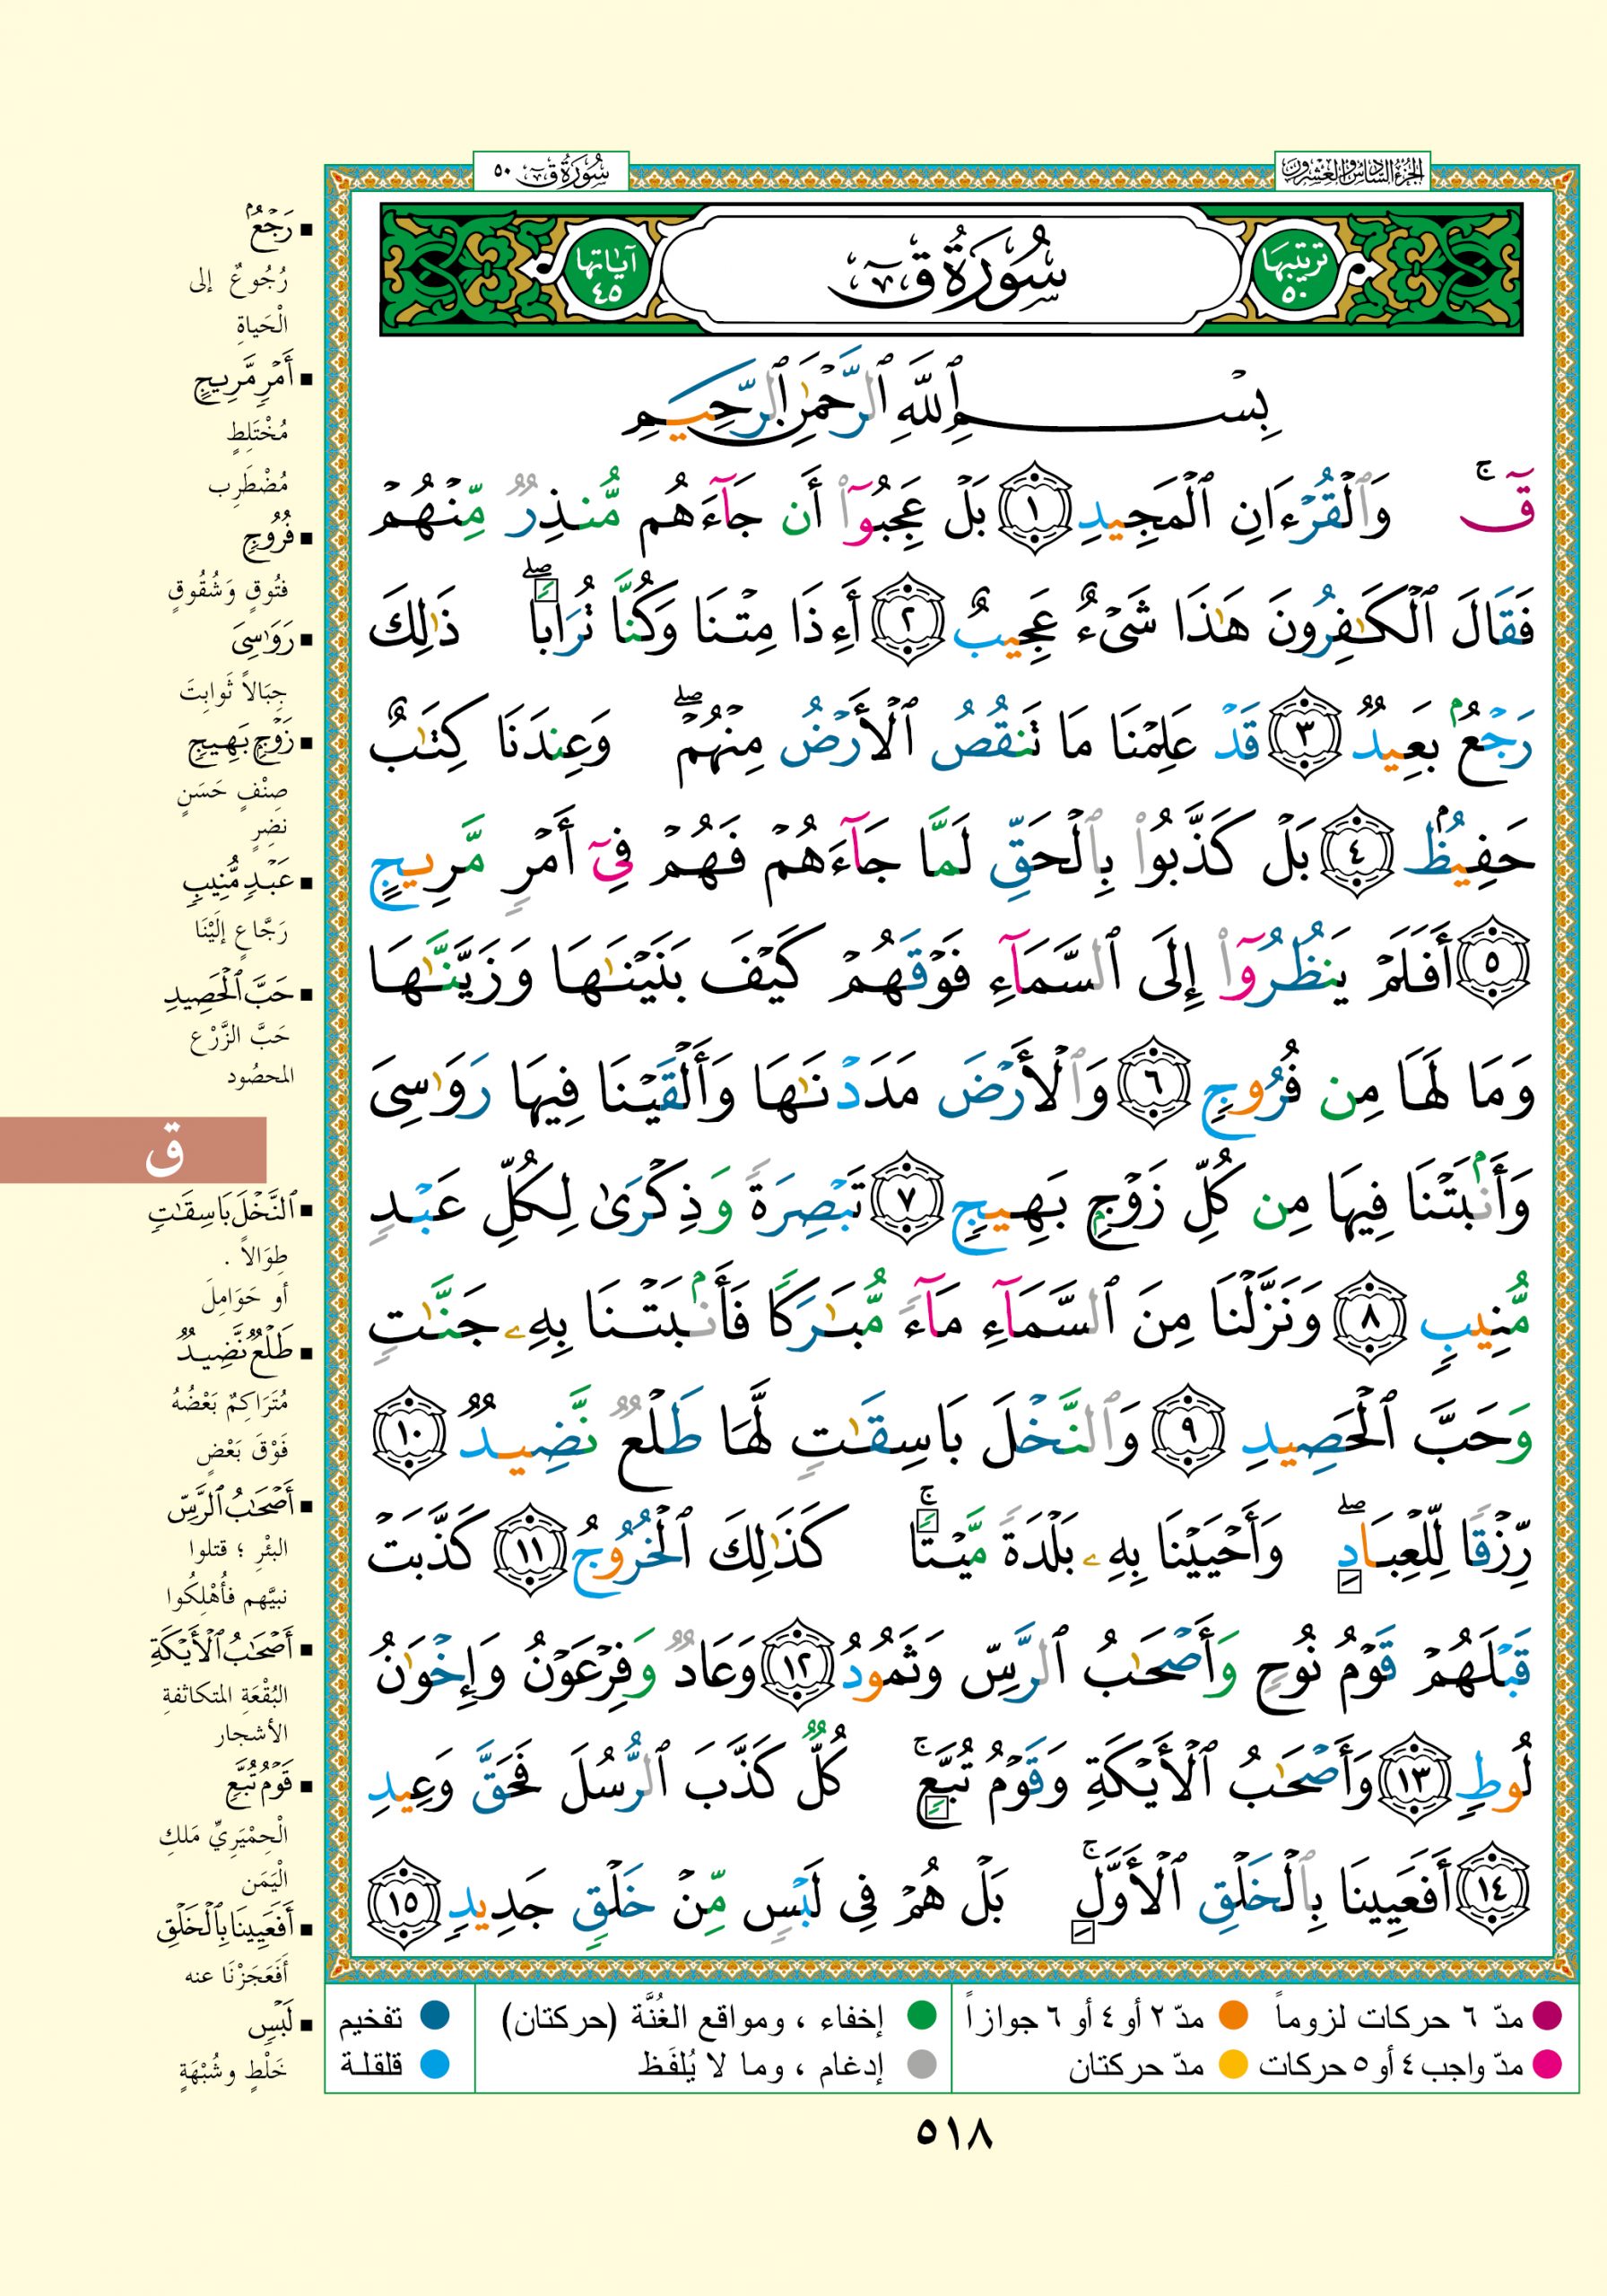 الجزء السادس والعشرون
سُورَةُ قٓ ٥٠
ترتيبها ٥٠
سُورَةُ قٓ
آياتها ٤٥
بِسْمِ ٱللَّهِ ٱلرَّحْمَٰنِ ٱلرَّحِيمِ
قٓۚ وَٱلْقُرْءَانِ ٱلْمَجِيدِ ١ بَلْ عَجِبُوٓا۟ أَن جَآءَهُم مُّنذِرٌ مِّنْهُمْ
فَقَالَ ٱلْكَٰفِرُونَ هَٰذَا شَىْءٌ عَجِيبٌ ٢ أَءِذَا مِتْنَا وَكُنَّا تُرَابًاۖ ذَٰلِكَ
رَجْعٌۢ بَعِيدٌ ٣ قَدْ عَلِمْنَا مَا تَنقُصُ ٱلْأَرْضُ مِنْهُمْۖ وَعِندَنَا كِتَٰبٌ
حَفِيظٌۢ ٤ بَلْ كَذَّبُوا۟ بِٱلْحَقِّ لَمَّا جَآءَهُمْ فَهُمْ فِىٓ أَمْرٍ مَّرِيجٍ
٥ أَفَلَمْ يَنظُرُوٓا۟ إِلَى ٱلسَّمَآءِ فَوْقَهُمْ كَيْفَ بَنَيْنَٰهَا وَزَيَّنَّٰهَا
وَمَا لَهَا مِن فُرُوجٍ ٦ وَٱلْأَرْضَ مَدَدْنَٰهَا وَأَلْقَيْنَا فِيهَا رَوَٰسِىَ
وَأَنۢبَتْنَا فِيهَا مِن كُلِّ زَوْجٍۭ بَهِيجٍ ٧ تَبْصِرَةً وَذِكْرَىٰ لِكُلِّ عَبْدٍ
مُّنِيبٍ ٨ وَنَزَّلْنَا مِنَ ٱلسَّمَآءِ مَآءً مُّبَٰرَكًا فَأَنۢبَتْنَا بِهِۦ جَنَّٰتٍ
وَحَبَّ ٱلْحَصِيدِ ٩ وَٱلنَّخْلَ بَاسِقَٰتٍ لَّهَا طَلْعٌ نَّضِيدٌ ١٠
رِّزْقًا لِّلْعِبَادِۖ وَأَحْيَيْنَا بِهِۦ بَلْدَةً مَّيْتًاۚ كَذَٰلِكَ ٱلْخُرُوجُ ١١ كَذَّبَتْ
قَبْلَهُمْ قَوْمُ نُوحٍ وَأَصْحَٰبُ ٱلرَّسِّ وَثَمُودُ ١٢ وَعَادٌ وَفِرْعَوْنُ وَإِخْوَٰنُ
لُوطٍ ١٣ وَأَصْحَٰبُ ٱلْأَيْكَةِ وَقَوْمُ تُبَّعٍۚ كُلٌّ كَذَّبَ ٱلرُّسُلَ فَحَقَّ وَعِيدِ
١٤ أَفَعَيِينَا بِٱلْخَلْقِ ٱلْأَوَّلِۚ بَلْ هُمْ فِى لَبْسٍ مِّنْ خَلْقٍ جَدِيدٍ ١٥
رَجْعٌۢ
رُجُوعٌ إلى
الْحَياةِ
أَمْرٍ مَّرِيجٍ
مُخْتَلِطٍ
مُضْطَرِب
فُرُوجٍ
فتُوقٍ وَشُقُوقٍ
رَوَٰسِىَ
جِبَالاً ثَوابِتَ
زَوْجٍ بَهِيجٍ
صِنْفٍ حَسَنٍ
نضِرٍ
عَبْدٍ مُّنِيبٍ
رَجَّاعٍ إلَيْنَا
حَبَّ ٱلْحَصِيدِ
حَبَّ الزَّرْع
المحصُود
ق
ٱلنَّخْلَ بَاسِقَٰتٍ
طِوَالاً .
أو حَوَامِلَ
طَلْعٌ نَّضِيدٌ
مُتَرَاكِمٌ بَعْضُهُ
فَوْقَ بَعْضٍ
أَصْحَٰبُ ٱلرَّسِّ
البئْرِ ؛ قتلوا
نبيَّهم فأُهْلِكُوا
أَصْحَٰبُ ٱلْأَيْكَةِ
البُقْعَةِ المتكاثفةِ
الأشجار
قَوْمُ تُبَّعٍ
الْحِمْيَرِيِّ مَلكِ
الْيَمَن
أَفَعَيِينَا بِٱلْخَلْقِ
أَفَعَجَزْنَا عنه
لَبْسٍ
خَلْطٍ وشُبْهَةٍ
مدّ ٦ حركات لزوماً مدّ ٢ أو ٤ أو ٦ جوازاً إخفاء ، ومواقع الغُنَّة (حركتان) تفخيم
مدّ واجب ٤ أو ٥ حركات مدّ حركتان إدغام ، وما لا يُلفَظ قلقلة
٥١٨